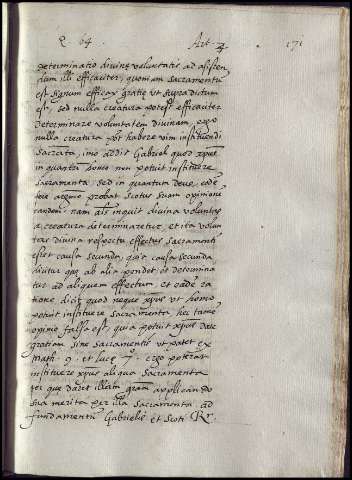 Q 64. Art. 3. 171
determinatio divinę voluntatis ad assisten
dum illi efficaciter, quoniam sacramentū
est signum efficax gratię ut supra dictum
est, sed nulla creatura potest efficaciter
determinare voluntatem divinam, ergo
nulla creatura pōt habere vim instituendi
sacramēta, imo addit Gabriel quod xp̄us
in quantū homo non potuit instituere
sacramenta, sed in quantum deus, eādē
probat Scotus suam opinionē
nam alr̄s inquit divina voluntas
a creatura determinaretur, et ita volun
tas divina respectu effectus sacramenti
esset causa secunda, quia causa secunda
dicitur quę ab alia pendet, et determina
tur ad aliquem effectum, et eādē ra
tione dicit quod neque xp̄us ut homo
potuit instituere sacramenta, hęc tamē
opinio falsa est, quia potuit xp̄us dare
gratiam sine sacramentis ut patet ex
math. 9. et lucę 7. ergo poterat
instituere xp̄us aliqua sacramenta
per quę daret illam gr̄am applicando
sua merita per illa sacramenta. ad
fundamentū Gabrielis et Scoti Rr.